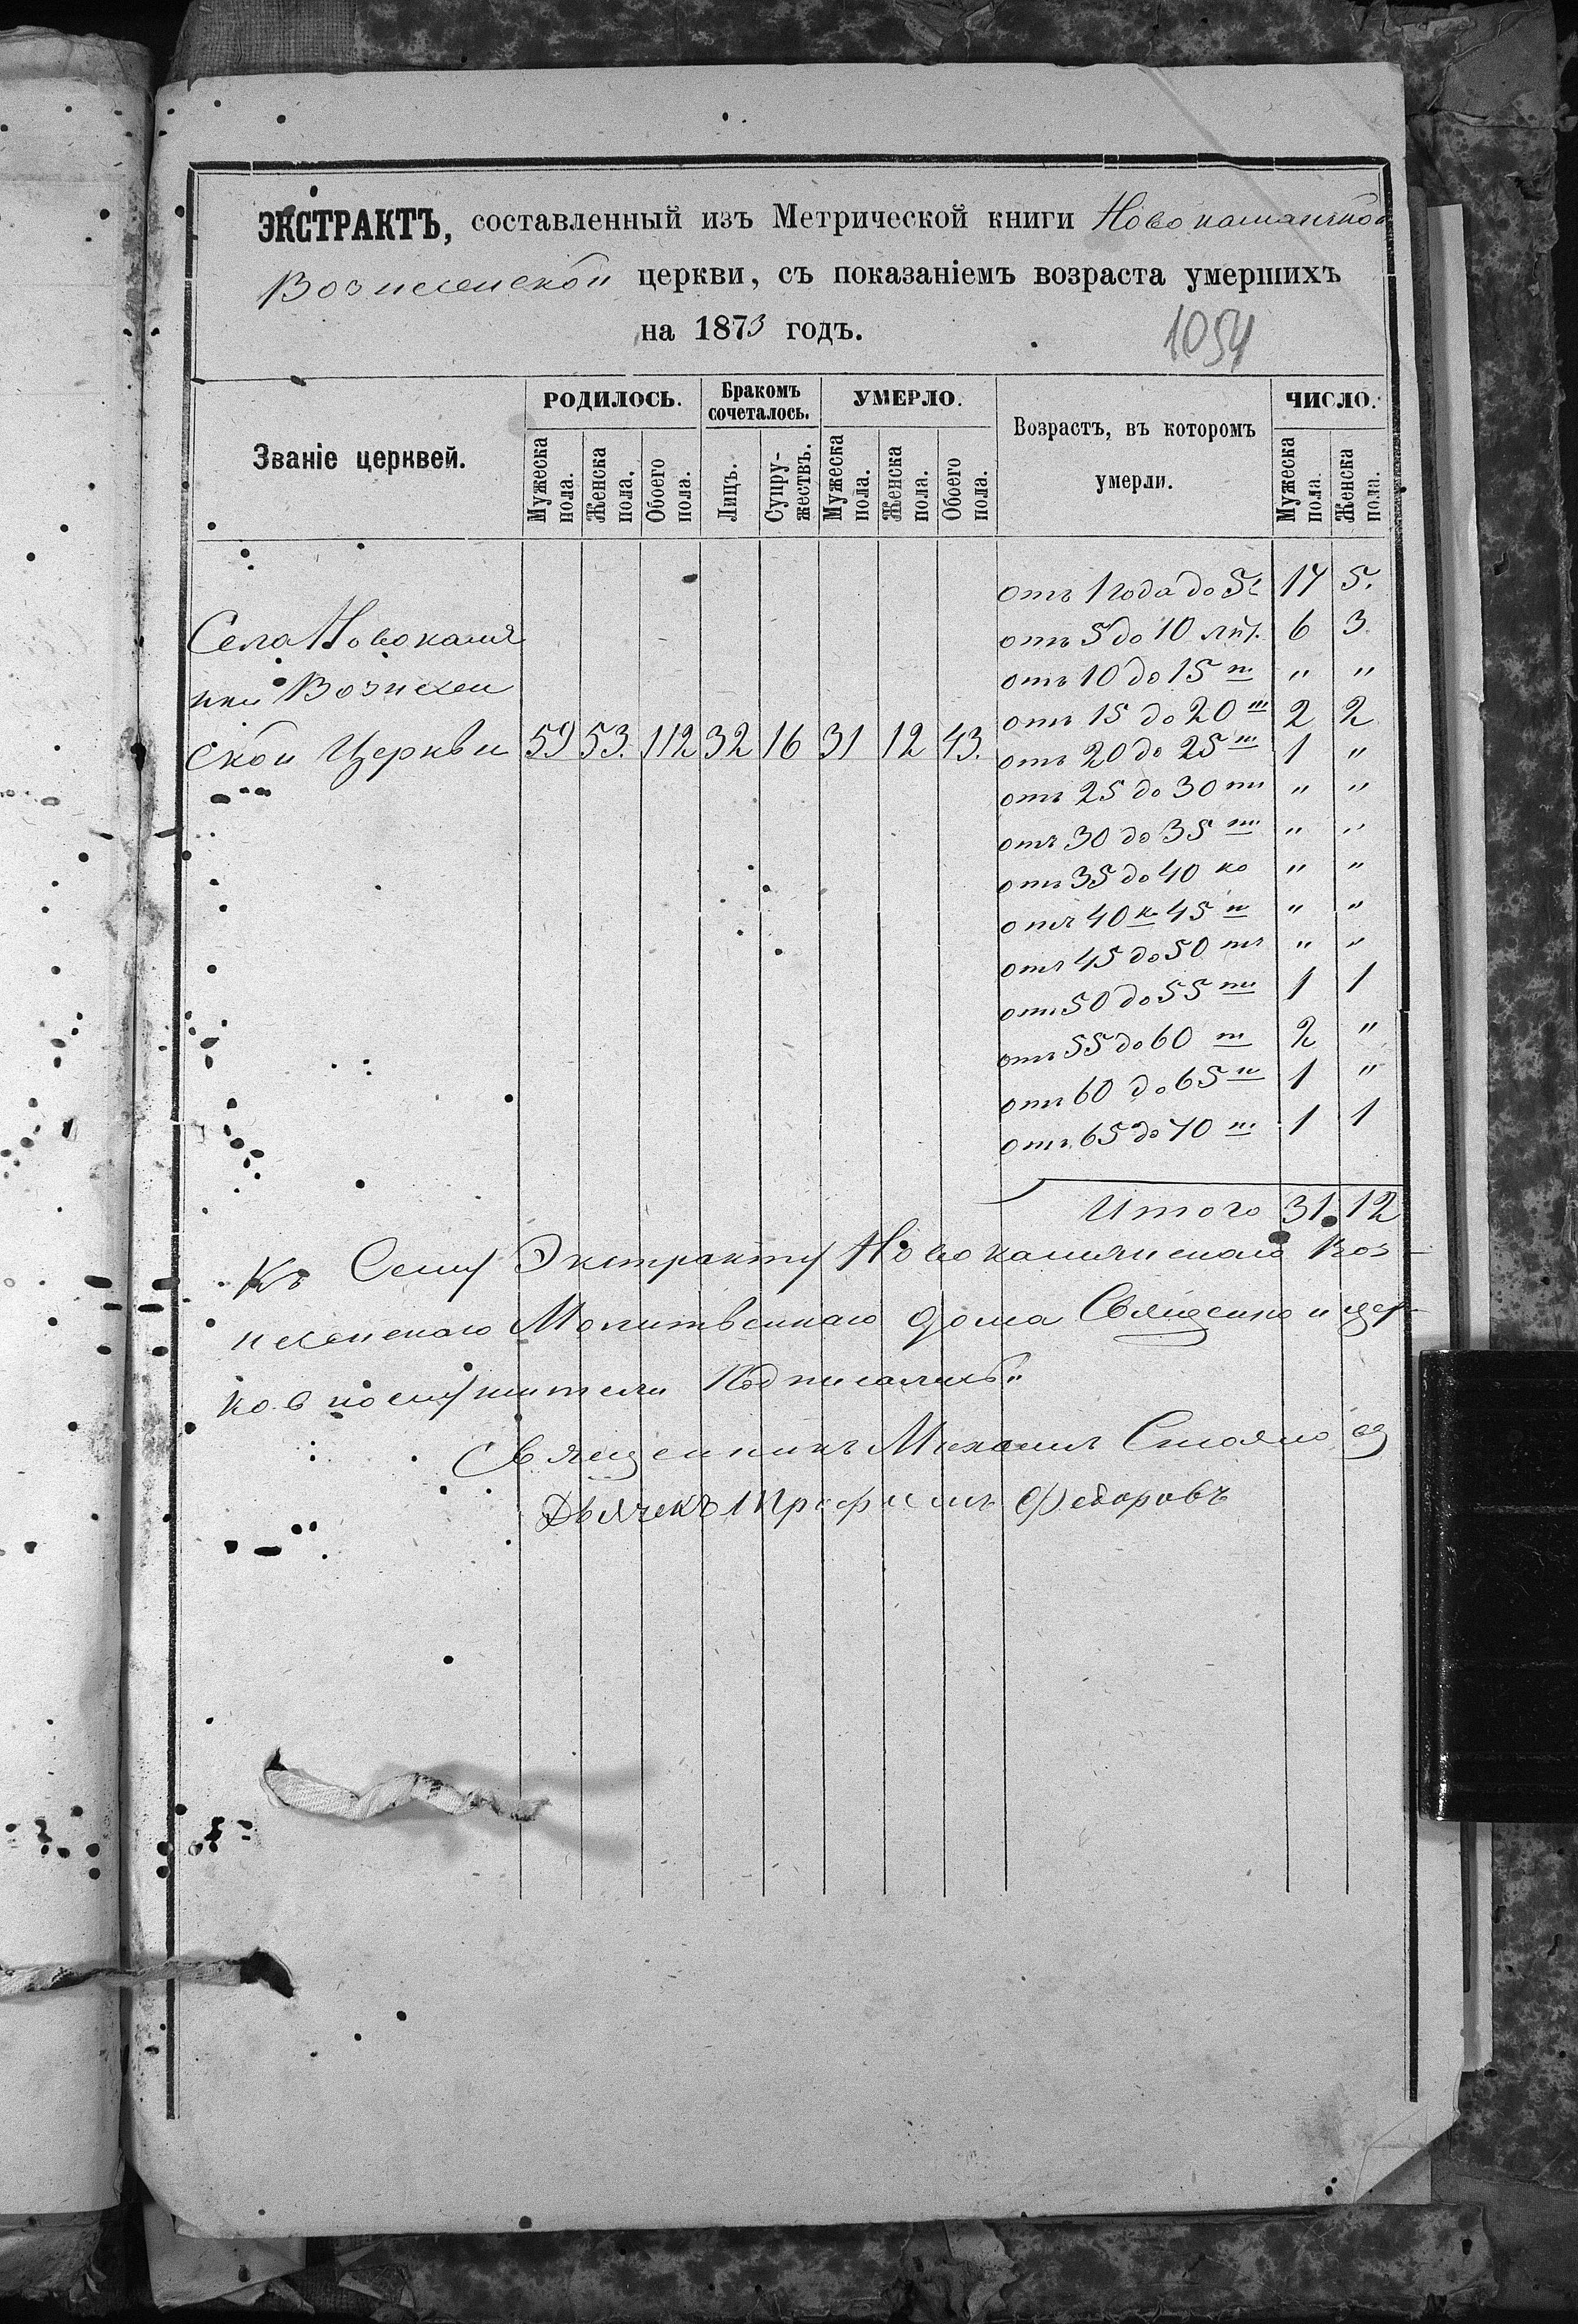 ЭКСТРАКТЪ, составленный изъ Метрической книги
Вознесенской церкви, съ показаніемъ возраста умершихъ
на 1873 годъ.
1054
Званіе церквей. РОДИЛОСЬ. Бракомъ сочеталось. УМЕРЛО. Возрастъ, въ которомъ умерли. ЧИСЛО.
Мужеска пола. Женска пола. Обоего пола. Лицъ. Супружествъ. Мужеска пола. Женска пола. Обоего пола. Мужеска пола. Женска пола.
отъ 1 года до 5 17 5.
Села Новокаш
отъ 5 до 10 лѣт. 6 3
отъ 10 до 15 „ „
Вознесен
отъ 15 до 20 2 2
ской Церкви 59 53. 112 32 16 31 12 43.
отъ 20 до 25 1 „
отъ 25 до 30 „ „
отъ 30 до 35 „ „
отъ 35 до 40 „ „
отъ 40 45 „ „
отъ 45 до 50 „ „
отъ 50 до 55 1 1
отъ 55 до 60 2 „
отъ 60 до 65 1 „
отъ 65 до 70 1 1
Итого 31. 12
Къ Сему Экстракту Воз-
несенскаго Молитвеннаго дома Священно и цер-
ковнослужители Подписались:
Священникъ Михаилъ
Дьячекъ Федоровъ